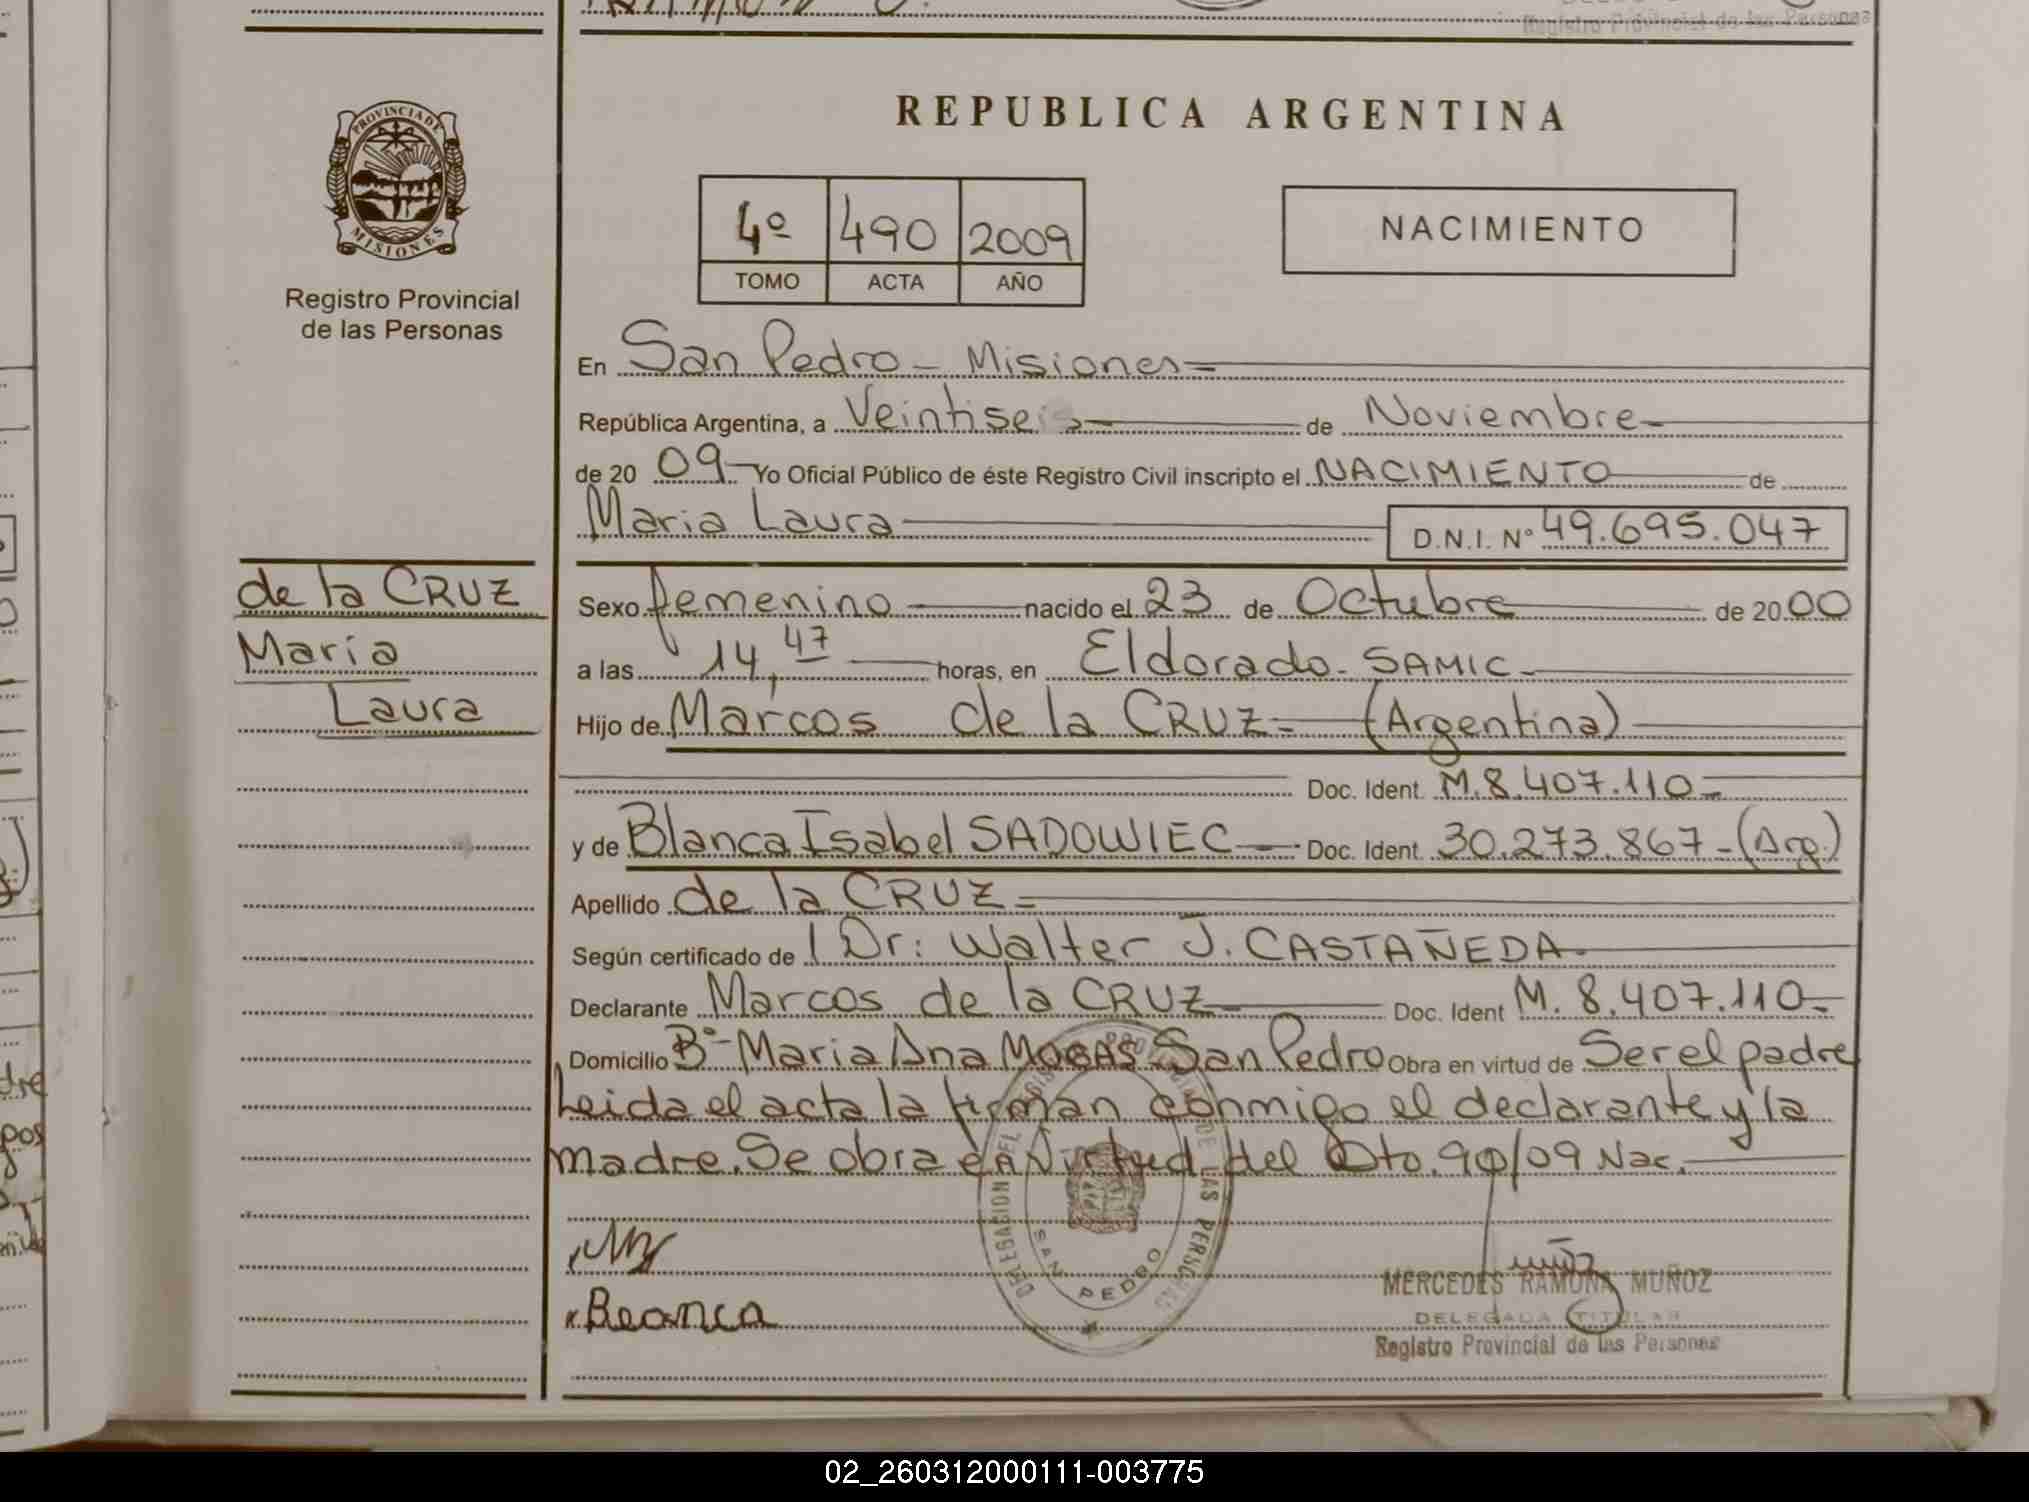 Registro Provincial de las Personas
REPUBLICA ARGENTINA
PROVINCIA DE
MISIONES
Registro Provincial
de las Personas
4º 490 2009
TOMO ACTA AÑO
NACIMIENTO
En San Pedro - Misiones
República Argentina, a Veintiseis de Noviembre
de 20 09 Yo Oficial Público de éste Registro Civil inscripto el NACIMIENTO de
Maria Laura D.N.I. Nº 49.695.047
de la CRUZ
María
Laura
Sexo femenino nacido el 23 de Octubre de 20 00
a las 14,47 horas, en Eldorado - SAMIC
Hijo de Marcos de la CRUZ (Argentina)
Doc. Ident. M.8.407.110
y de Blanca Isabel SADOWIEC Doc. Ident. 30.273.867 - (Arg.)
Apellido de la CRUZ
Según certificado de Dr: Walter J. CASTAÑEDA
Declarante Marcos de la CRUZ Doc. Ident M. 8.407.110
Domicilio Bº Maria Ana MOGAS San Pedro Obra en virtud de Ser el padre
Leida el acta la firman conmigo el declarante y la
madre. Se obra en virtud del Dto. 90/09 Nac.
DELEGACION DEL REGISTRO PROVINCIAL DE LAS PERSONAS
SAN PEDRO
Beanca
MERCEDES RAMONA MUÑOZ
DELEGADA TITULAR
Registro Provincial de las Personas
02_260312000111-003775